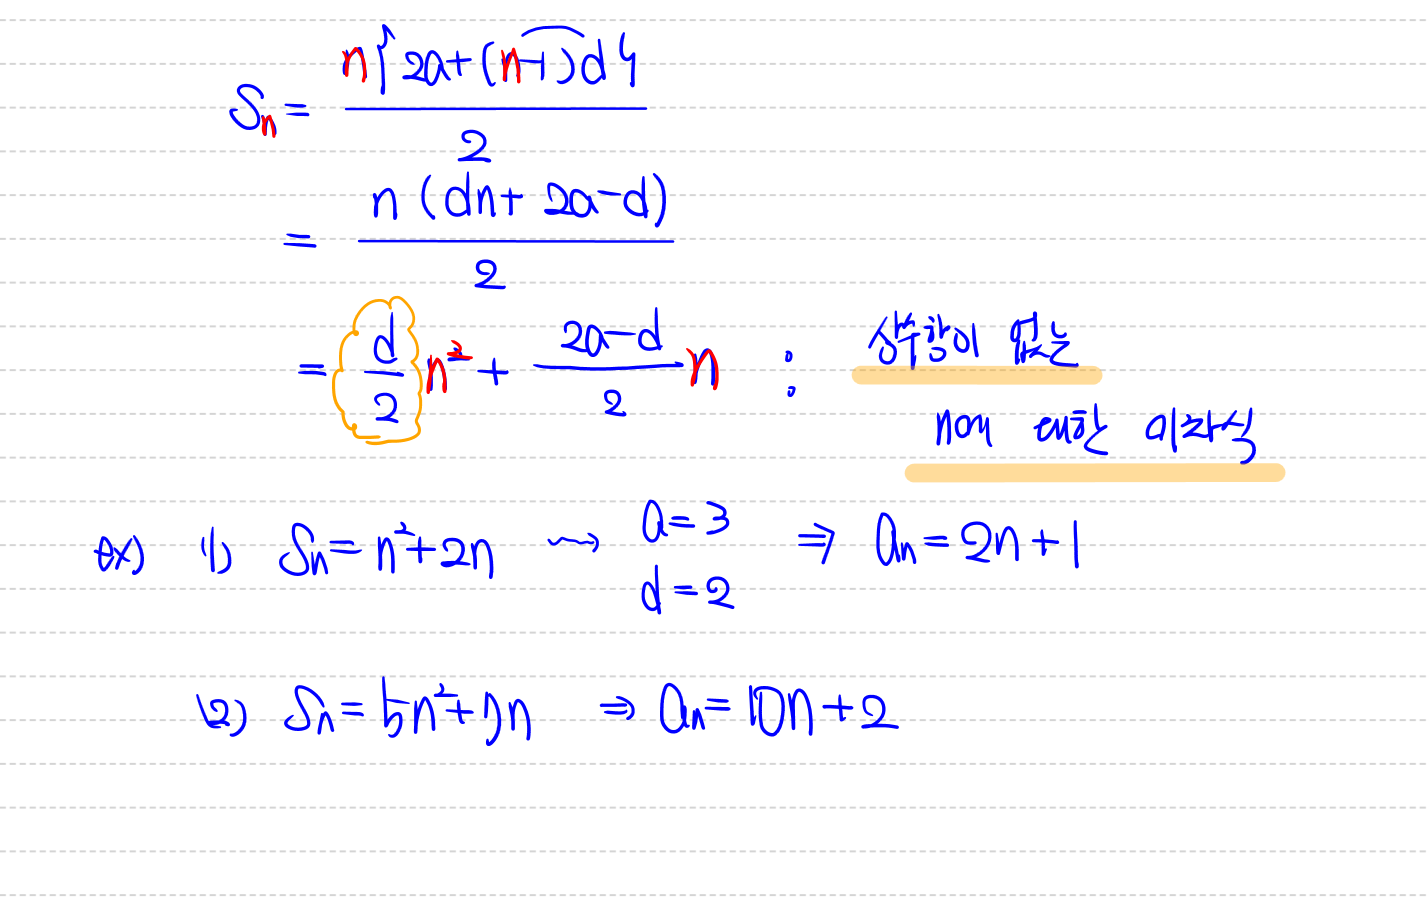 Sₙ = n{2a+(n-1)d} / 2
= n(dn+2a-d) / 2
= d/2 n² + (2a-d)/2 n : 상수항이 없는
n에 대한 이차식
ex) (1) Sₙ = n²+2n ⇝ a=3 d=2 ⇒ aₙ = 2n+1
(2) Sₙ = 5n²+7n ⇒ aₙ = 10n+2